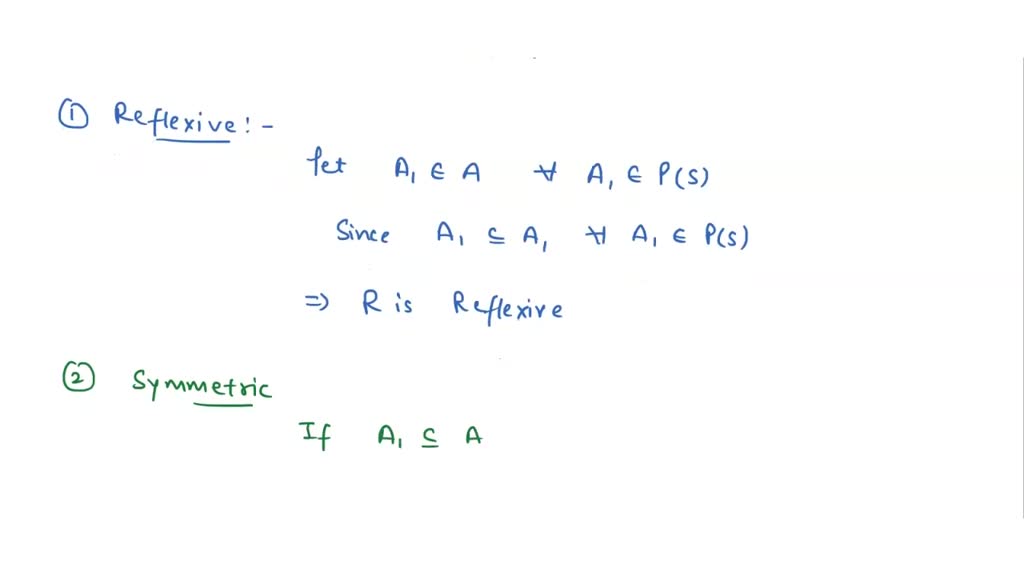 ① Reflexive:-
let A₁ ∈ A ∀ A₁ ∈ P(S)
Since A₁ ⊆ A₁ ∀ A₁ ∈ P(S)
⇒ R is Reflexive
② Symmetric
If A₁ ⊆ A